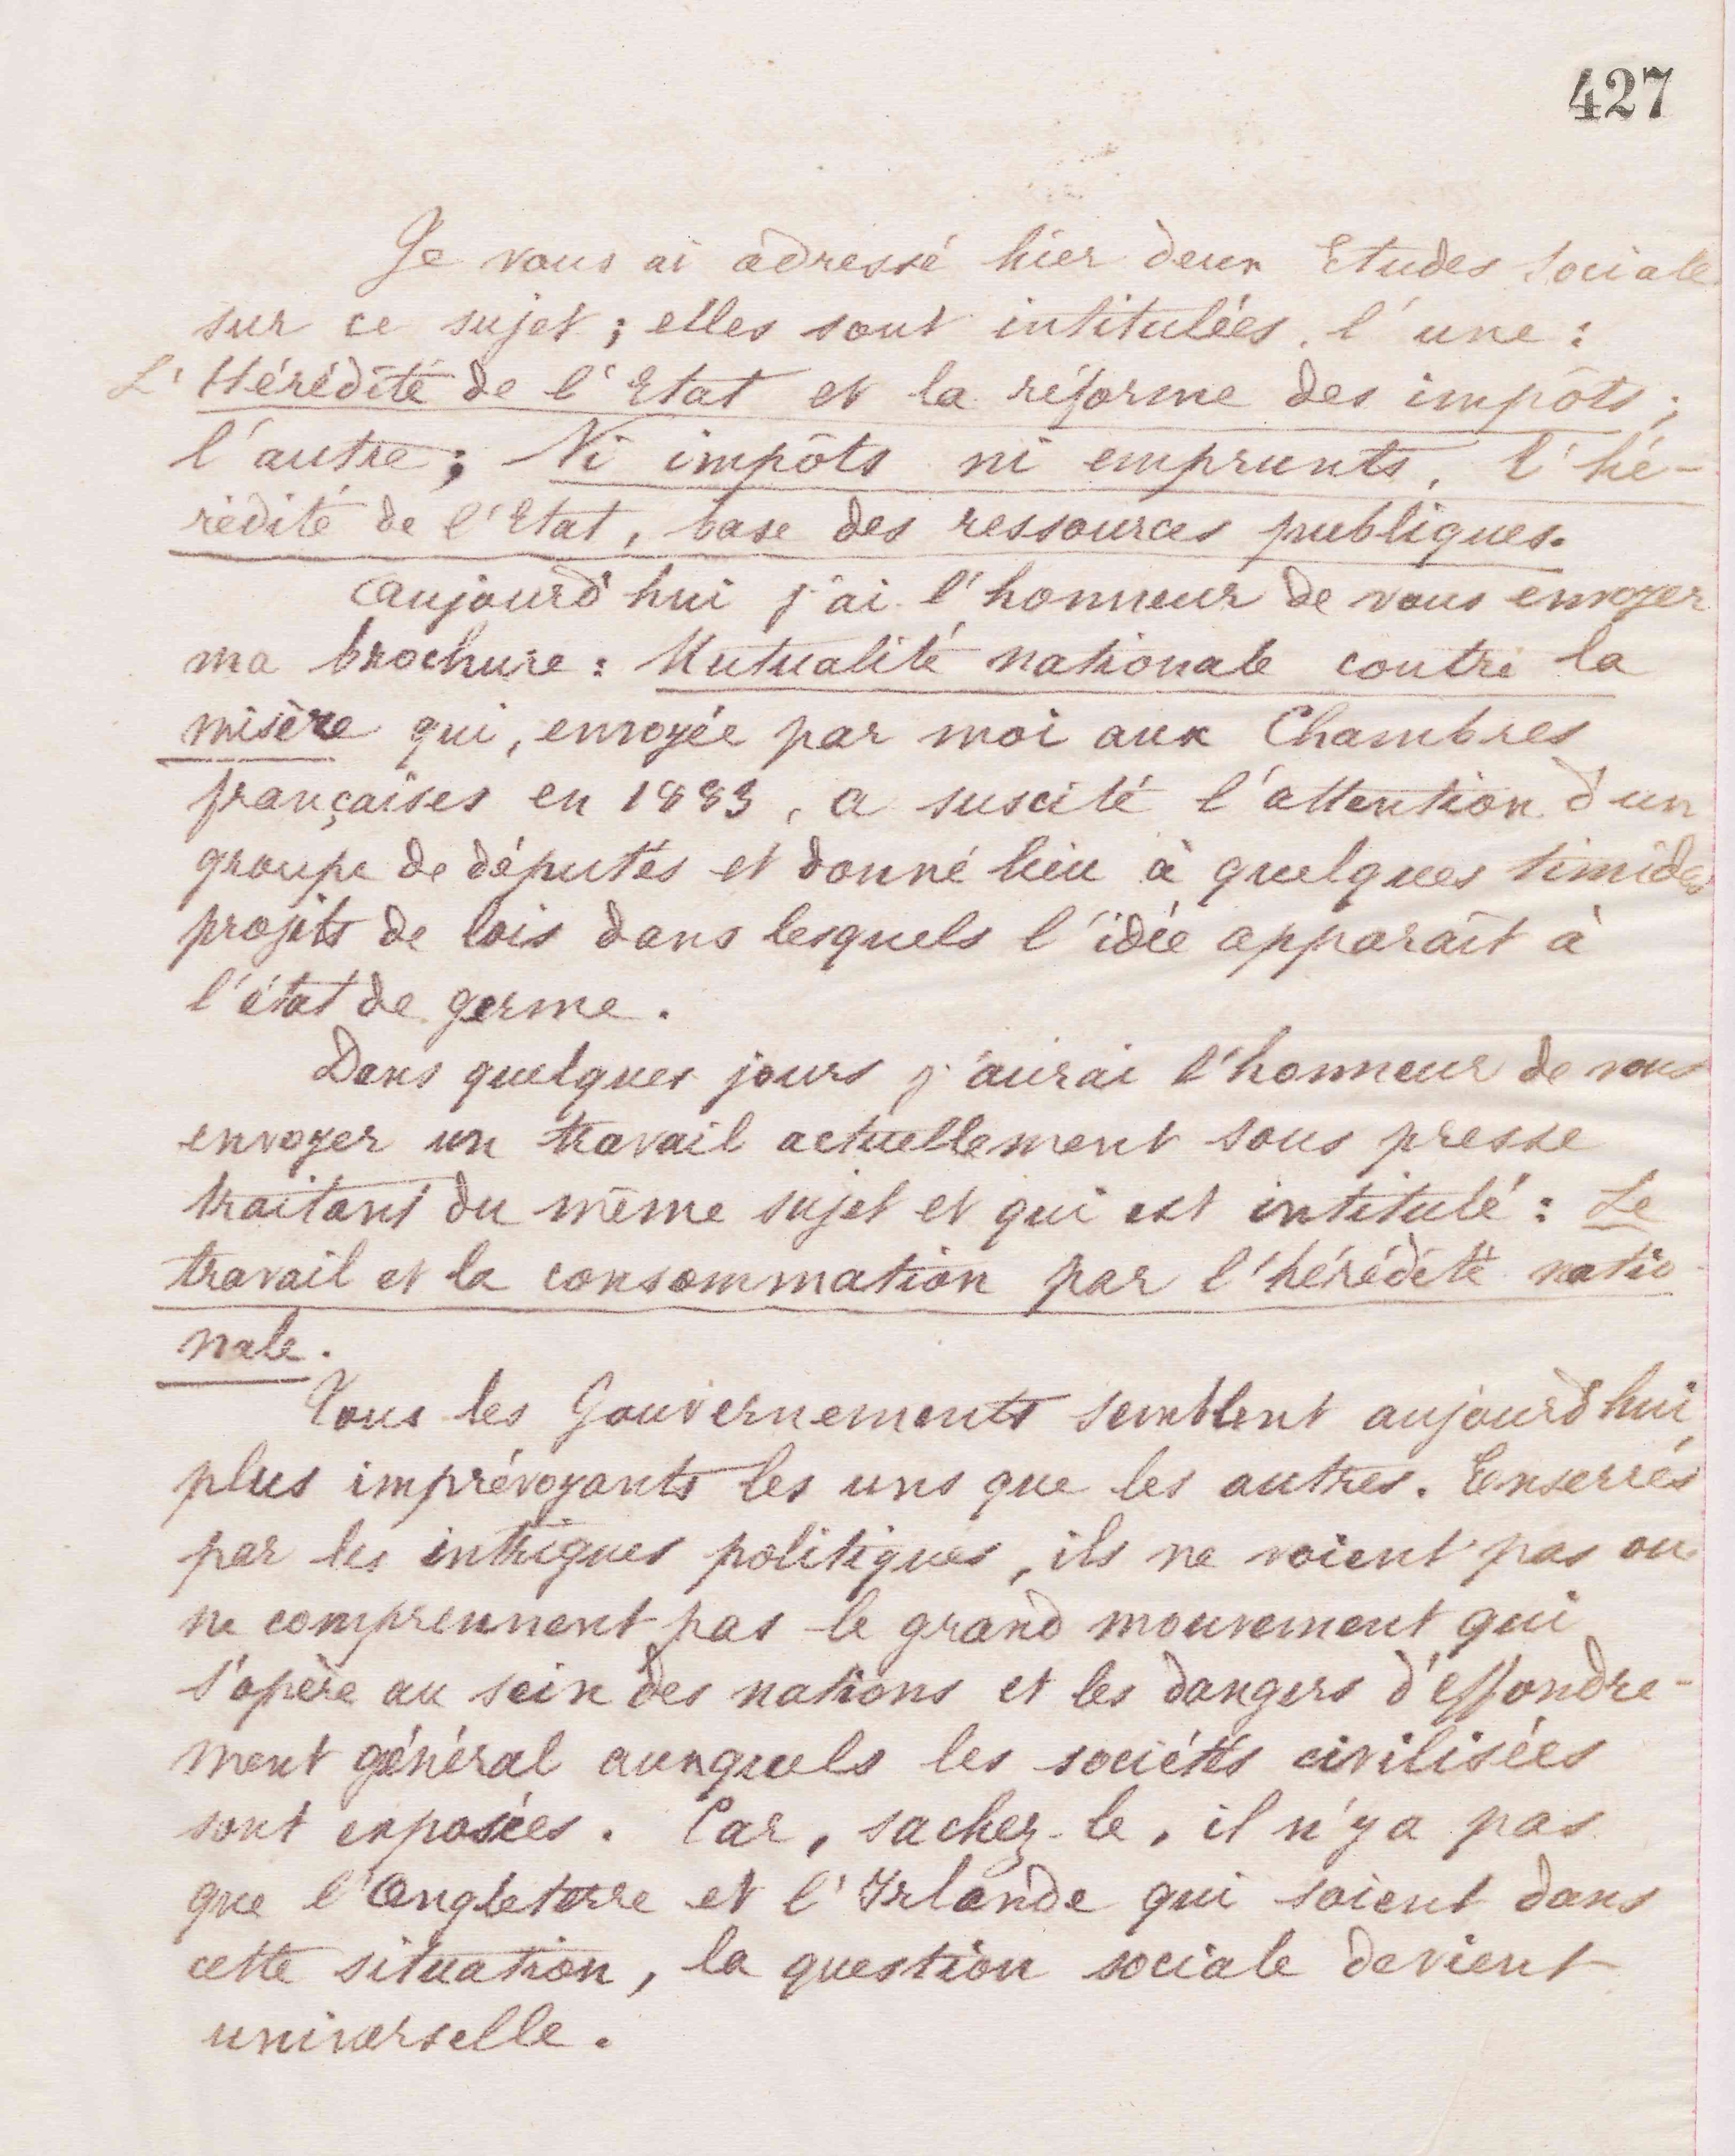 427
Je vous ai adressé hier deux Etudes Sociale
sur ce sujet ; elles sont intitulées, l'une :
L'Hérédité de l'Etat et la réforme des impôts ;
l'autre ; Ni impôts ni emprunts, l'hé-
rédité de l'Etat, base des ressources publiques.
Aujourd'hui j'ai l'honneur de vous envoyer
ma brochure : Mutualité nationale contre la
misère qui, envoyée par moi aux Chambres
françaises en 1883, a suscité l'attention d'un
groupe de députés et donné lieu à quelques timides
projets de lois dans lesquels l'idée apparaît à
l'état de germe.
Dans quelques jours j'aurai l'honneur de vous
envoyer un travail actuellement sous presse
traitant du même sujet et qui est intitulé : Le
travail et la consommation par l'hérédité natio-
nale.
Tous les Gouvernements semblent aujourd'hui,
plus imprévoyants les uns que les autres. Enserrés
par les intrigues politiques, ils ne voient pas ou
ne comprennent pas le grand mouvement qui
s'opère au sein des nations et les dangers d'effondre-
ment général auxquels les sociétés civilisées
sont exposées. Car, sachez-le, il n'y a pas
que l'Angleterre et l'Irlande qui soient dans
cette situation, la question sociale devient
universelle.